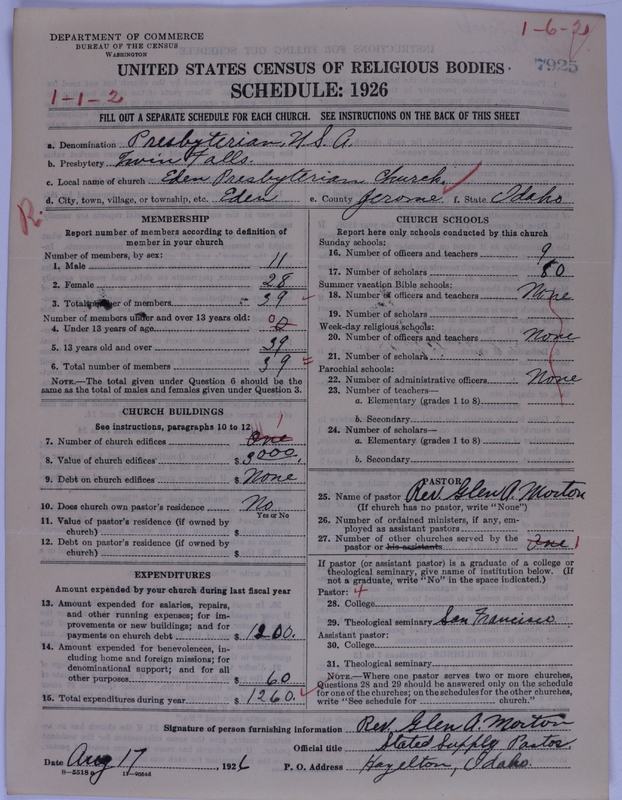 1-6-2
DEPARTMENT OF COMMERCE
BUREAU OF THE CENSUS
WASHINGTON
7925
UNITED STATES CENSUS OF RELIGIOUS BODIES
1-1-2
SCHEDULE: 1926
FILL OUT A SEPARATE SCHEDULE FOR EACH CHURCH. SEE INSTRUCTIONS ON THE BACK OF THIS SHEET
a. Denomination Presbyterian, U.S.A.
b. Presbytery Twin Falls.
c. Local name of church Eden Presbyterian Church.
d. City, town, village, or township, etc. Eden e. County Jerome f. State Idaho
R.
MEMBERSHIP
Report number of members according to definition of
member in your church
Number of members, by sex:
1. Male 11
2. Female 28
3. Total number of members 39
Number of members under and over 13 years old:
4. Under 13 years of age 0
5. 13 years old and over 39
6. Total number of members 39
NOTE.—The total given under Question 6 should be
same as the total of males and females given under Question 3.
CHURCH BUILDINGS
See instructions, paragraphs 10 to 12
7. Number of church edifices One 1
8. Value of church edifices $ 3000.
9. Debt on church edifices $ None
10. Does church own pastor's residence No
Yes or No
11. Value of pastor's residence (if owned by
church) $
12. Debt on pastor's residence (if owned by
church) $
EXPENDITURES
Amount expended by your church during last fiscal year
13. Amount expended for salaries, repairs,
and other running expenses; for im-
provements or new buildings; and for
payments on church debt $ 1200.
14. Amount expended for benevolences, in-
cluding home and foreign missions; for
denominational support; and for all
other purposes $ 60
15. Total expenditures during year $ 1260.
CHURCH SCHOOLS
Report here only schools conducted by this church
Sunday schools:
16. Number of officers and teachers 9
17. Number of scholars 80
Summer vacation Bible schools:
18. Number of officers and teachers None
19. Number of scholars
Week-day religious schools:
20. Number of officers and teachers None
21. Number of scholars
Parochial schools:
22. Number of administrative officers None
23. Number of teachers—
a. Elementary (grades 1 to 8)
b. Secondary
24. Number of scholars—
a. Elementary (grades 1 to 8)
b. Secondary
PASTOR
25. Name of pastor Rev. Glen A. Morton
(If church has no pastor, write "None")
26. Number of ordained ministers, if any, em-
ployed as assistant pastors
27. Number of other churches served by the
pastor or his assistants One 1
If pastor (or assistant pastor) is a graduate of a college or
theological seminary, give name of institution below. (If
not a graduate, write "No" in the space indicated.)
Pastor: 4
28. College
29. Theological seminary San Francisco
Assistant pastor:
30. College
31. Theological seminary
NOTE.—Where one pastor serves two or more churches,
Questions 28 and 29 should be answered only on the schedule
for one of the churches; on the schedules for the other churches,
write "See schedule for church."
Signature of person furnishing information Rev. Glen A. Morton
Official title Stated Supply Pastor.
Date Aug 17, 1926 P. O. Address Hazelton, Idaho.